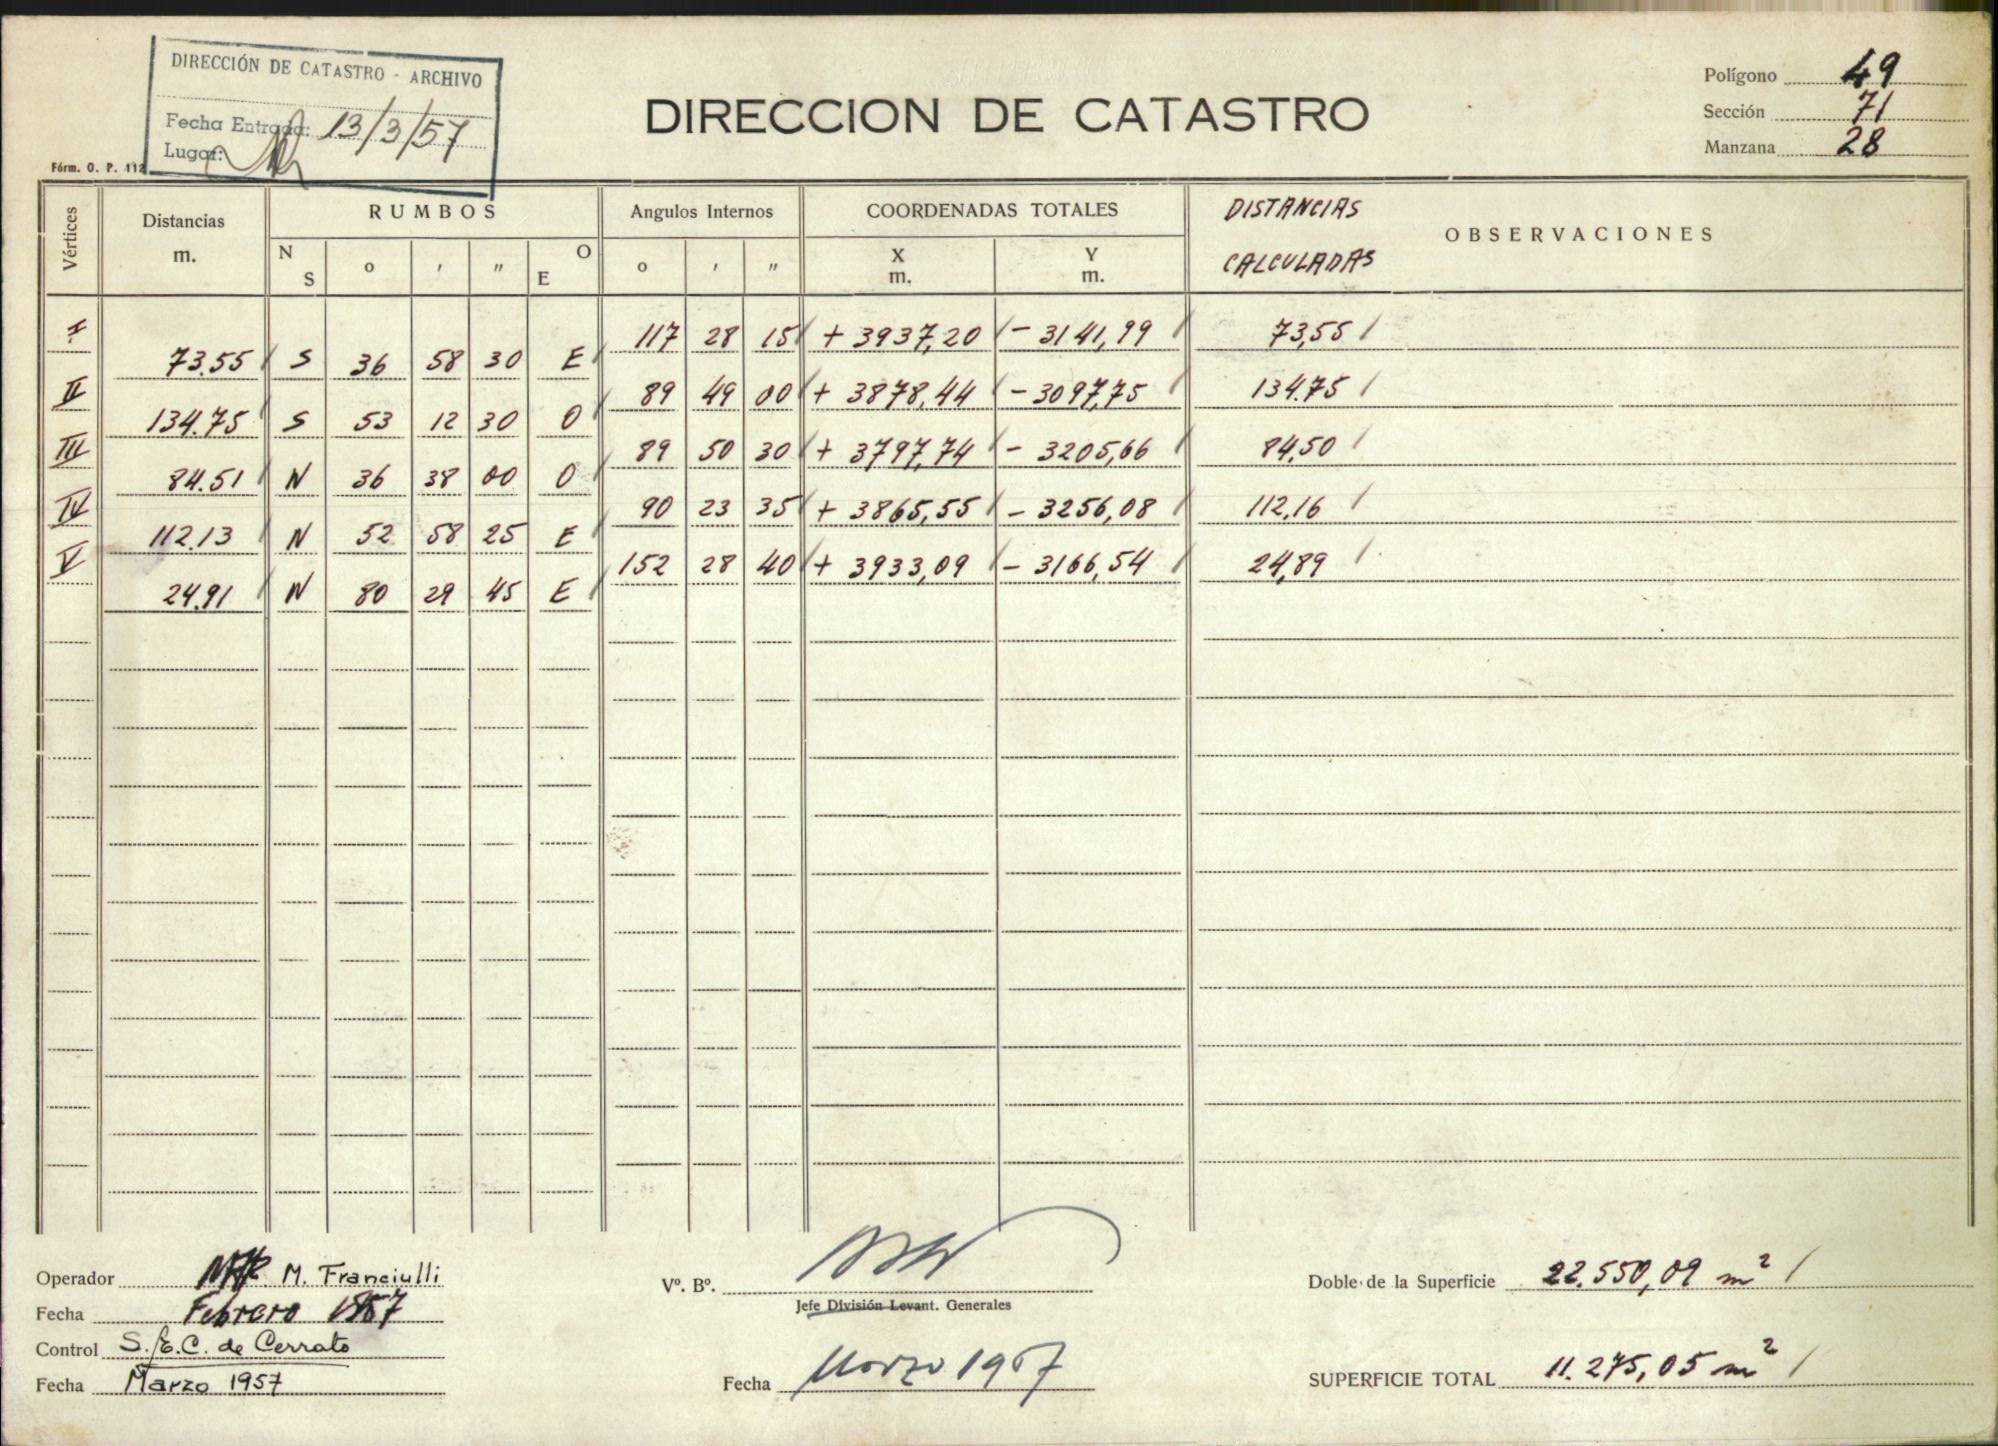 DIRECCIÓN DE CATASTRO - ARCHIVO
Fecha Entrada: 13/3/57
Lugar:
Fórm. O. P. 112
DIRECCION DE CATASTRO
Polígono 49
Sección 71
Manzana 28
Vértices Distancias m. RUMBOS Angulos Internos COORDENADAS TOTALES DISTANCIAS CALCULADAS OBSERVACIONES
N S o ' " O E o ' " X m. Y m.
I 117 28 15 + 3937,20 - 3141,99 73,55
73.55 S 36 58 30 E
II 89 49 00 + 3878,44 - 3097,75 134.75
134.75 S 53 12 30 O
III 89 50 30 + 3797,74 - 3205,66 84,50
84.51 N 36 38 00 O
IV 90 23 35 + 3865,55 - 3256,08 112,16
112.13 N 52 58 25 E
V 152 28 40 + 3933,09 - 3166,54 24,89
24.91 N 80 29 45 E
Operador M. Franciulli
Fecha Febrero 1957
Control S.E.C. de Cerrato
Fecha Marzo 1957
Vº. Bº.
Jefe División Levant. Generales
Fecha Marzo 1957
Doble de la Superficie 22.550,09 m²
SUPERFICIE TOTAL 11.275,05 m²